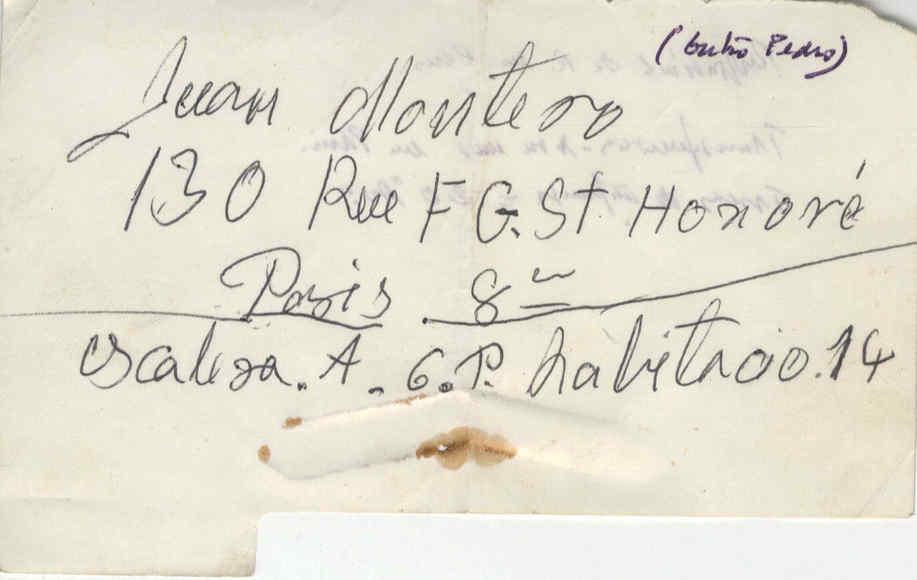 Pedro)
Juan Montero
130 Rue F G. St Honoré
Paris. 8
escalera. A. 6. P. habitacio. 14